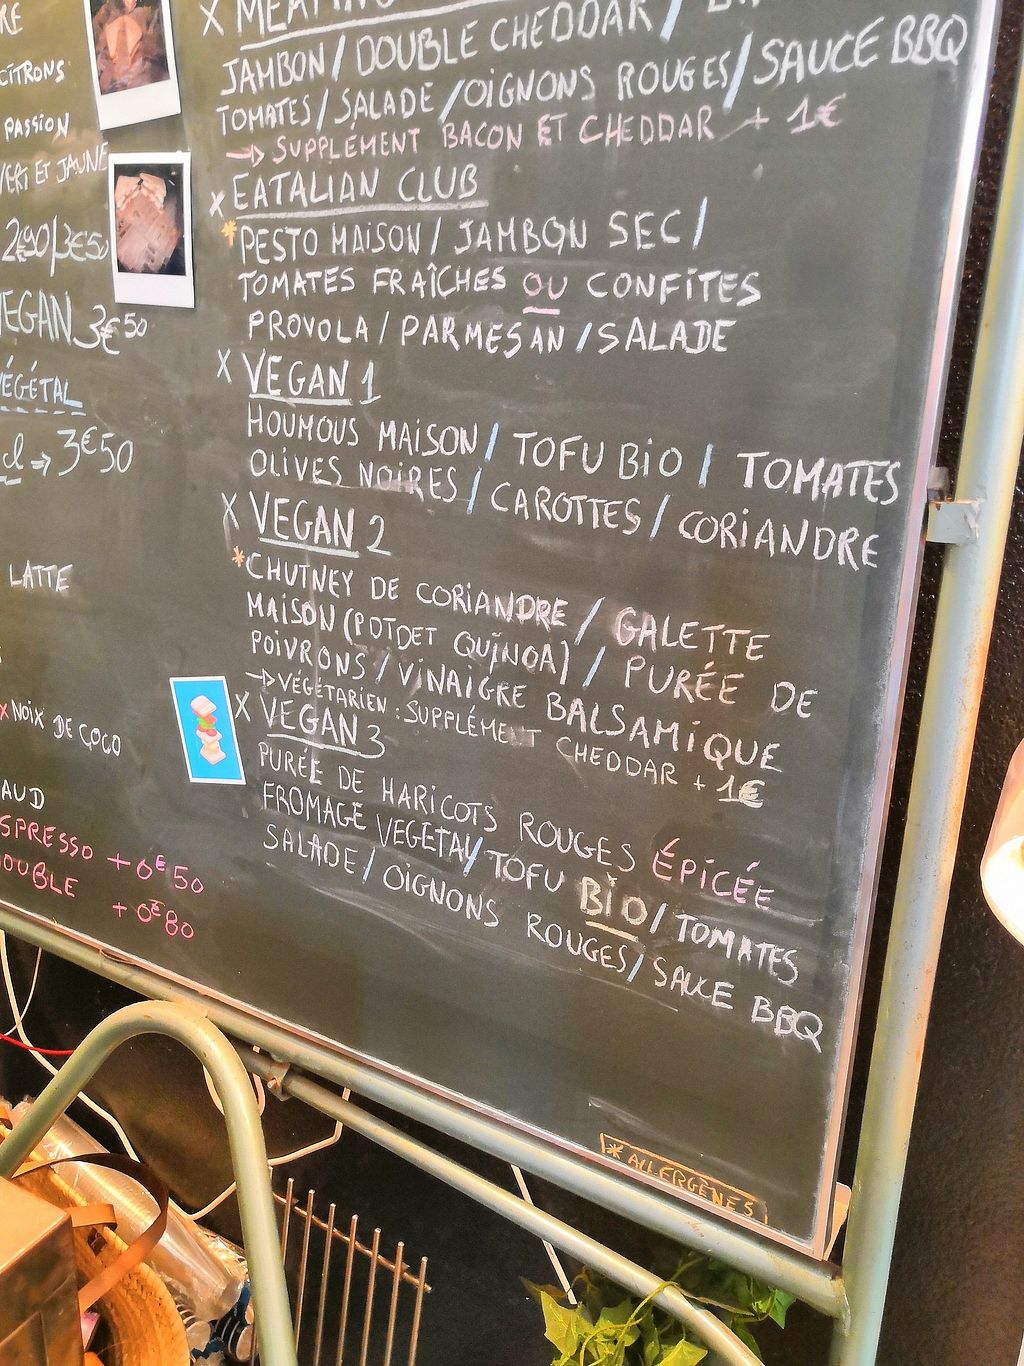 RE
CITRONS
PASSION
VERT ET JAUNE
2€90/3€50
VEGAN 3€50
VÉGÉTAL
3€50
LATTE
X NOIX DE COCO
AUD
SPRESSO + 0€50
DOUBLE + 0€80
X
JAMBON / DOUBLE CHEDDAR /
TOMATES / SALADE / OIGNONS ROUGES / SAUCE BBQ
→ SUPPLÉMENT BACON ET CHEDDAR + 1€
X EATALIAN CLUB
* PESTO MAISON / JAMBON SEC /
TOMATES FRAÎCHES OU CONFITES
PROVOLA / PARMESAN / SALADE
X VEGAN 1
HOUMOUS MAISON / TOFU BIO / TOMATES
OLIVES NOIRES / CAROTTES / CORIANDRE
X VEGAN 2
* CHUTNEY DE CORIANDRE / GALETTE
MAISON (POTDET QUINOA) / PURÉE DE
POIVRONS / VINAIGRE BALSAMIQUE
→ VÉGÉTARIEN : SUPPLÉMENT CHEDDAR + 1€
X VEGAN 3
PURÉE DE HARICOTS ROUGES ÉPICÉE
FROMAGE VEGETAL / TOFU BIO / TOMATES
SALADE / OIGNONS ROUGES / SAUCE BBQ
* ALLERGÈNES